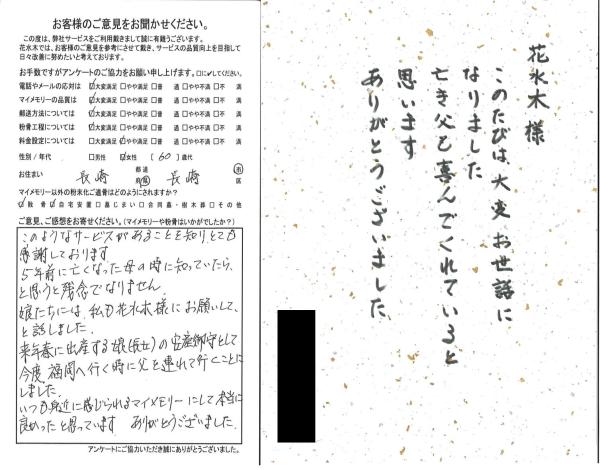 お客様のご意見をお聞かせください。
この度は、弊社サービスをご利用戴きまして誠に有難うございます。
花水木では、お客様のご意見を参考にさせて戴き、サービスの品質向上を目指して
日々改善に努めたいと考えております。
お手数ですがアンケートのご協力をお願い申し上げます。口に✓してください。
電話やメールの応対は ☑大変満足 □やや満足 □普 通 □やや不満 □不 満
マイメモリーの品質は ☑大変満足 □やや満足 □普 通 □やや不満 □不 満
郵送方法については ☑大変満足 □やや満足 □普 通 □やや不満 □不 満
粉骨工程については ☑大変満足 □やや満足 □普 通 □やや不満 □不 満
料金設定については ☑大変満足 □やや満足 □普 通 □やや不満 □不 満
性別 / 年代 □男性 ☑女性 ( 60 )歳代
お住まい 長崎 都道府県 長崎 市区
マイメモリー以外の粉末化ご遺骨はどのようにされますか?
☑散 骨 ☑自宅安置 □墓じまい □合同墓・樹木葬 □その他
ご意見、ご感想をお寄せください。(マイメモリーや粉骨はいかがでしたか?)
このようなサービスがあることを知りとても
感謝しております
5年前に亡くなった母の時に知っていたら、
と思うと残念でなりません。
娘たちには、私も花水木様にお願いして、
と話しました。
来年春に出産する娘(長女)の安産御守として
今度、福岡へ行く時に父を連れて行くことに
しました。
いつも身近に感じられるマイメモリーにして本当に
良かったと思っています ありがとうございました。
アンケートにご協力いただき誠にありがとうございました。
花水木様
このたびは大変お世話に
なりました
亡き父も喜んでくれていると
思います
ありがとうございました